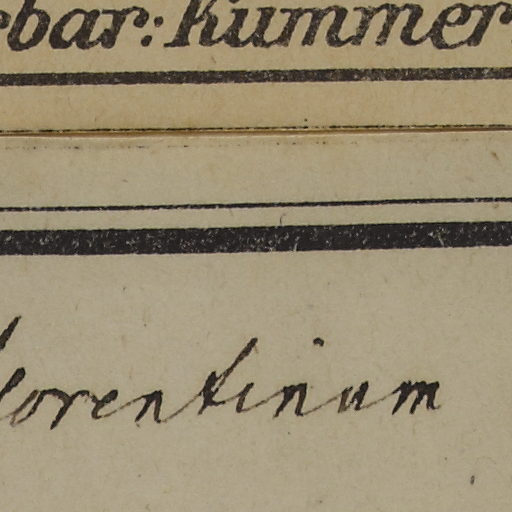 rbar: Kummer
lorentinum